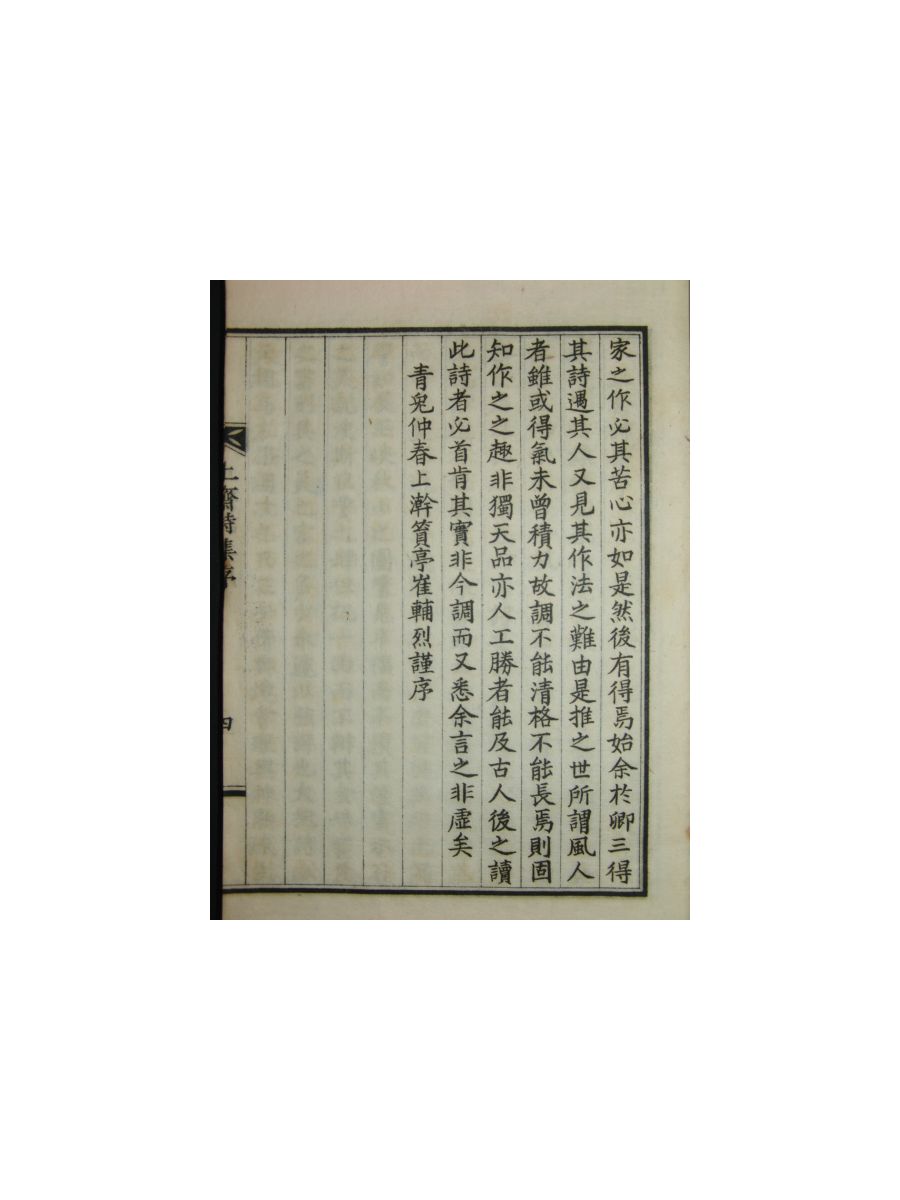 家之作必其苦心亦如是然後有得焉始余於卿三得
其詩遇其人又見其作法之難由是推之世所謂風人
者雖或得氣未曾積力故調不能清格不能長焉則固
知作之之趣非獨天品亦人工勝者能及古人後之讀
此詩者必首肯其實非今調而又悉余言之非虛矣
青兔仲春上澣篔亭崔輔烈謹序
齋詩集序
四